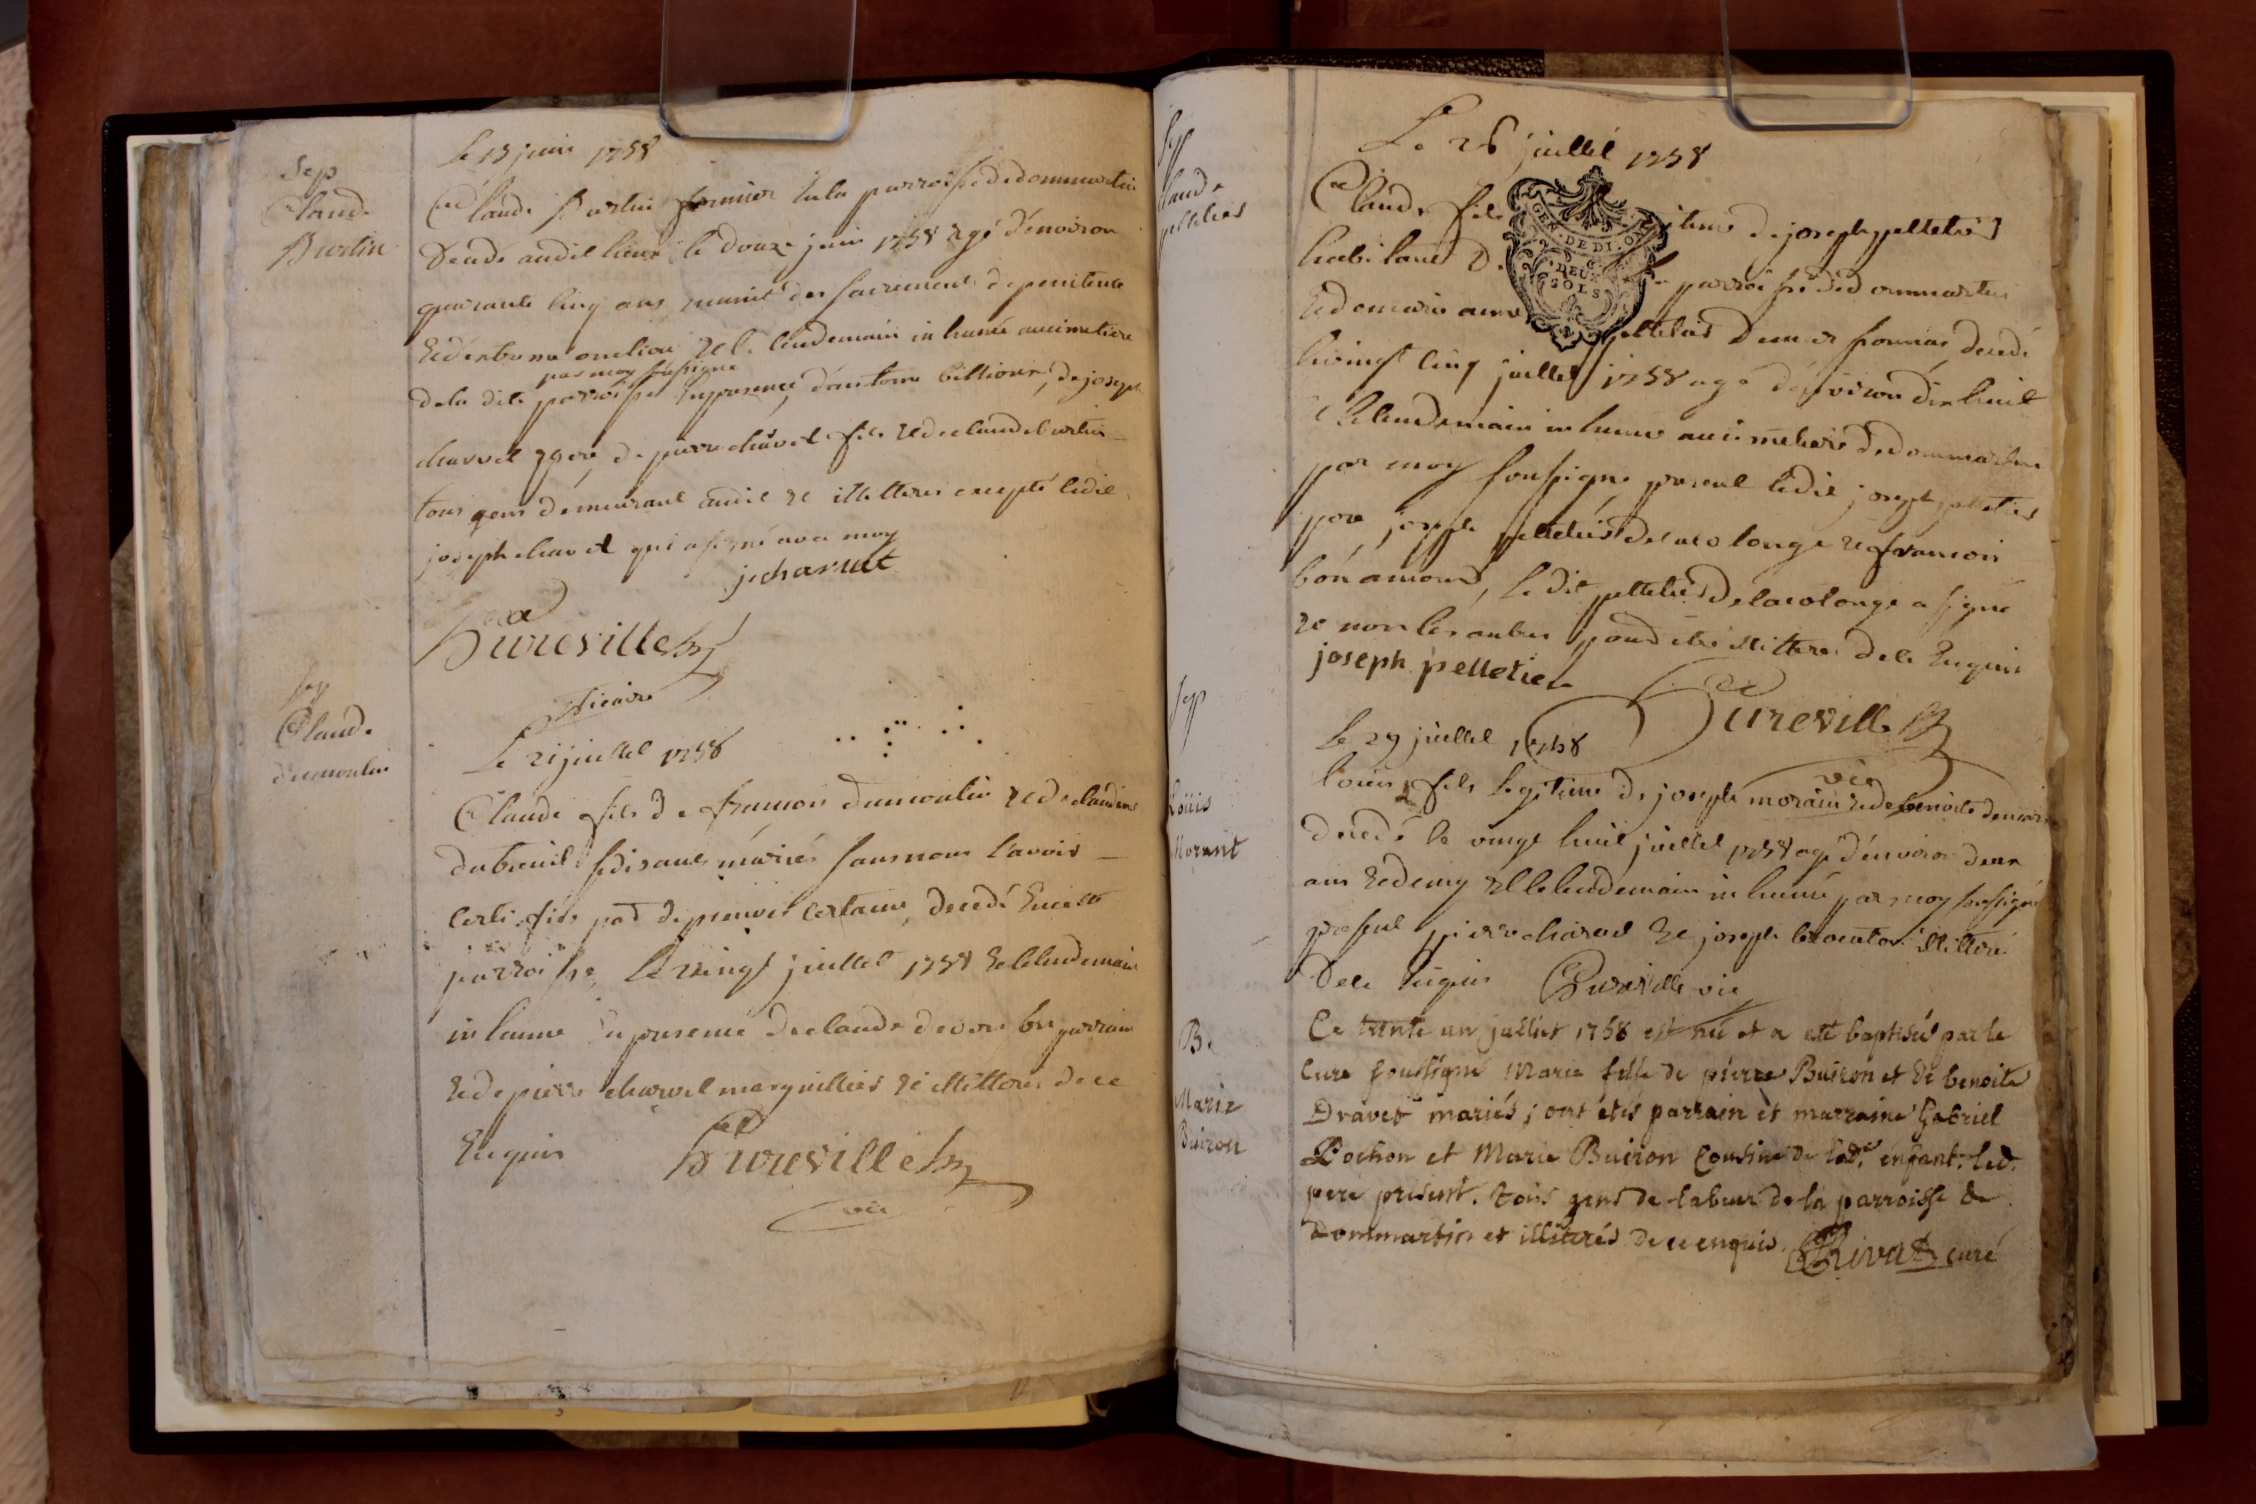 Sep
Claude
Burtin
Le 13 juin 1758
Claude Burtin fermier en la parroisse de dommartin
decedé audit lieu le douze juin 1758 agé d'environ
quarante cinq ans, munit des sacrements de penitence
et d'extreme onction et le lendemain inhumé au cimetiere
par moy soussigne
de la dite parroisse en presence d'antoine billioux, de joseph
charvet, de pierre charvet fils et de claude burtin
tous gens demeurant audit et illetteres excepté ledit
joseph charvet qui a signé avec moy
j charvet
Bureville
vicaire
sep
Claude
dumoulin
Le 21 juillet 1758
Claude fils de francois dumoulin et de claudine
dubreuil se disants mariés sans nous l'avoir
certifiés pas de preuves certaine, decedé en cette
parroisse, le vingt juillet 1758 et le lendemain
inhumé en presence de claude parrain
et de pierre charvet marguillier et illetteres de ce
enquis
Bureville
vic
sep
Claude
pelletier
Le 26 juillet 1758
Claude fils legitime de joseph pelletier
habitant de parroisse de dommartin
et de marie anne pelletier decedé
le vingt cinq juillet 1758 agé d'environ dix huit
et le lendemain inhumé au cimetiere de dommartin
par moy soussigné present ledit joseph pelletier
pere, joseph pelletier de la colonge et francois
bonamour, le dit pelletier de la colonge a signé
et non les autres pour etre illetteres de ce enquis
joseph pelletier
Bureville
vic
GEN. DE DI. ON
DEUX
SOLS
sep
Loüis
Morant
Le 29 juillet 1758
louis fils legitime de joseph morain et de benoite
decedé le vingt huit juillet 1758 agé d'environ deux
ans et demy et le lendemain inhumé par moy soussigné
present pierre charvet et joseph illitteré
de ce enquis Bureville vic
B.
Marie
Buiron
Le trente un juillet 1758 est née et a eté baptisée par le
curé soussigné Marie fille de pierre Buiron et de benoite
Dravet mariés; ont étés parrain et marraine Gabriel
Pochon et Marie Buiron Cousine de lad.e enfant. led.
pere present. tous gens de labeur de la parroisse de
dommartin et illiterés de ce enquis. Rivat curé